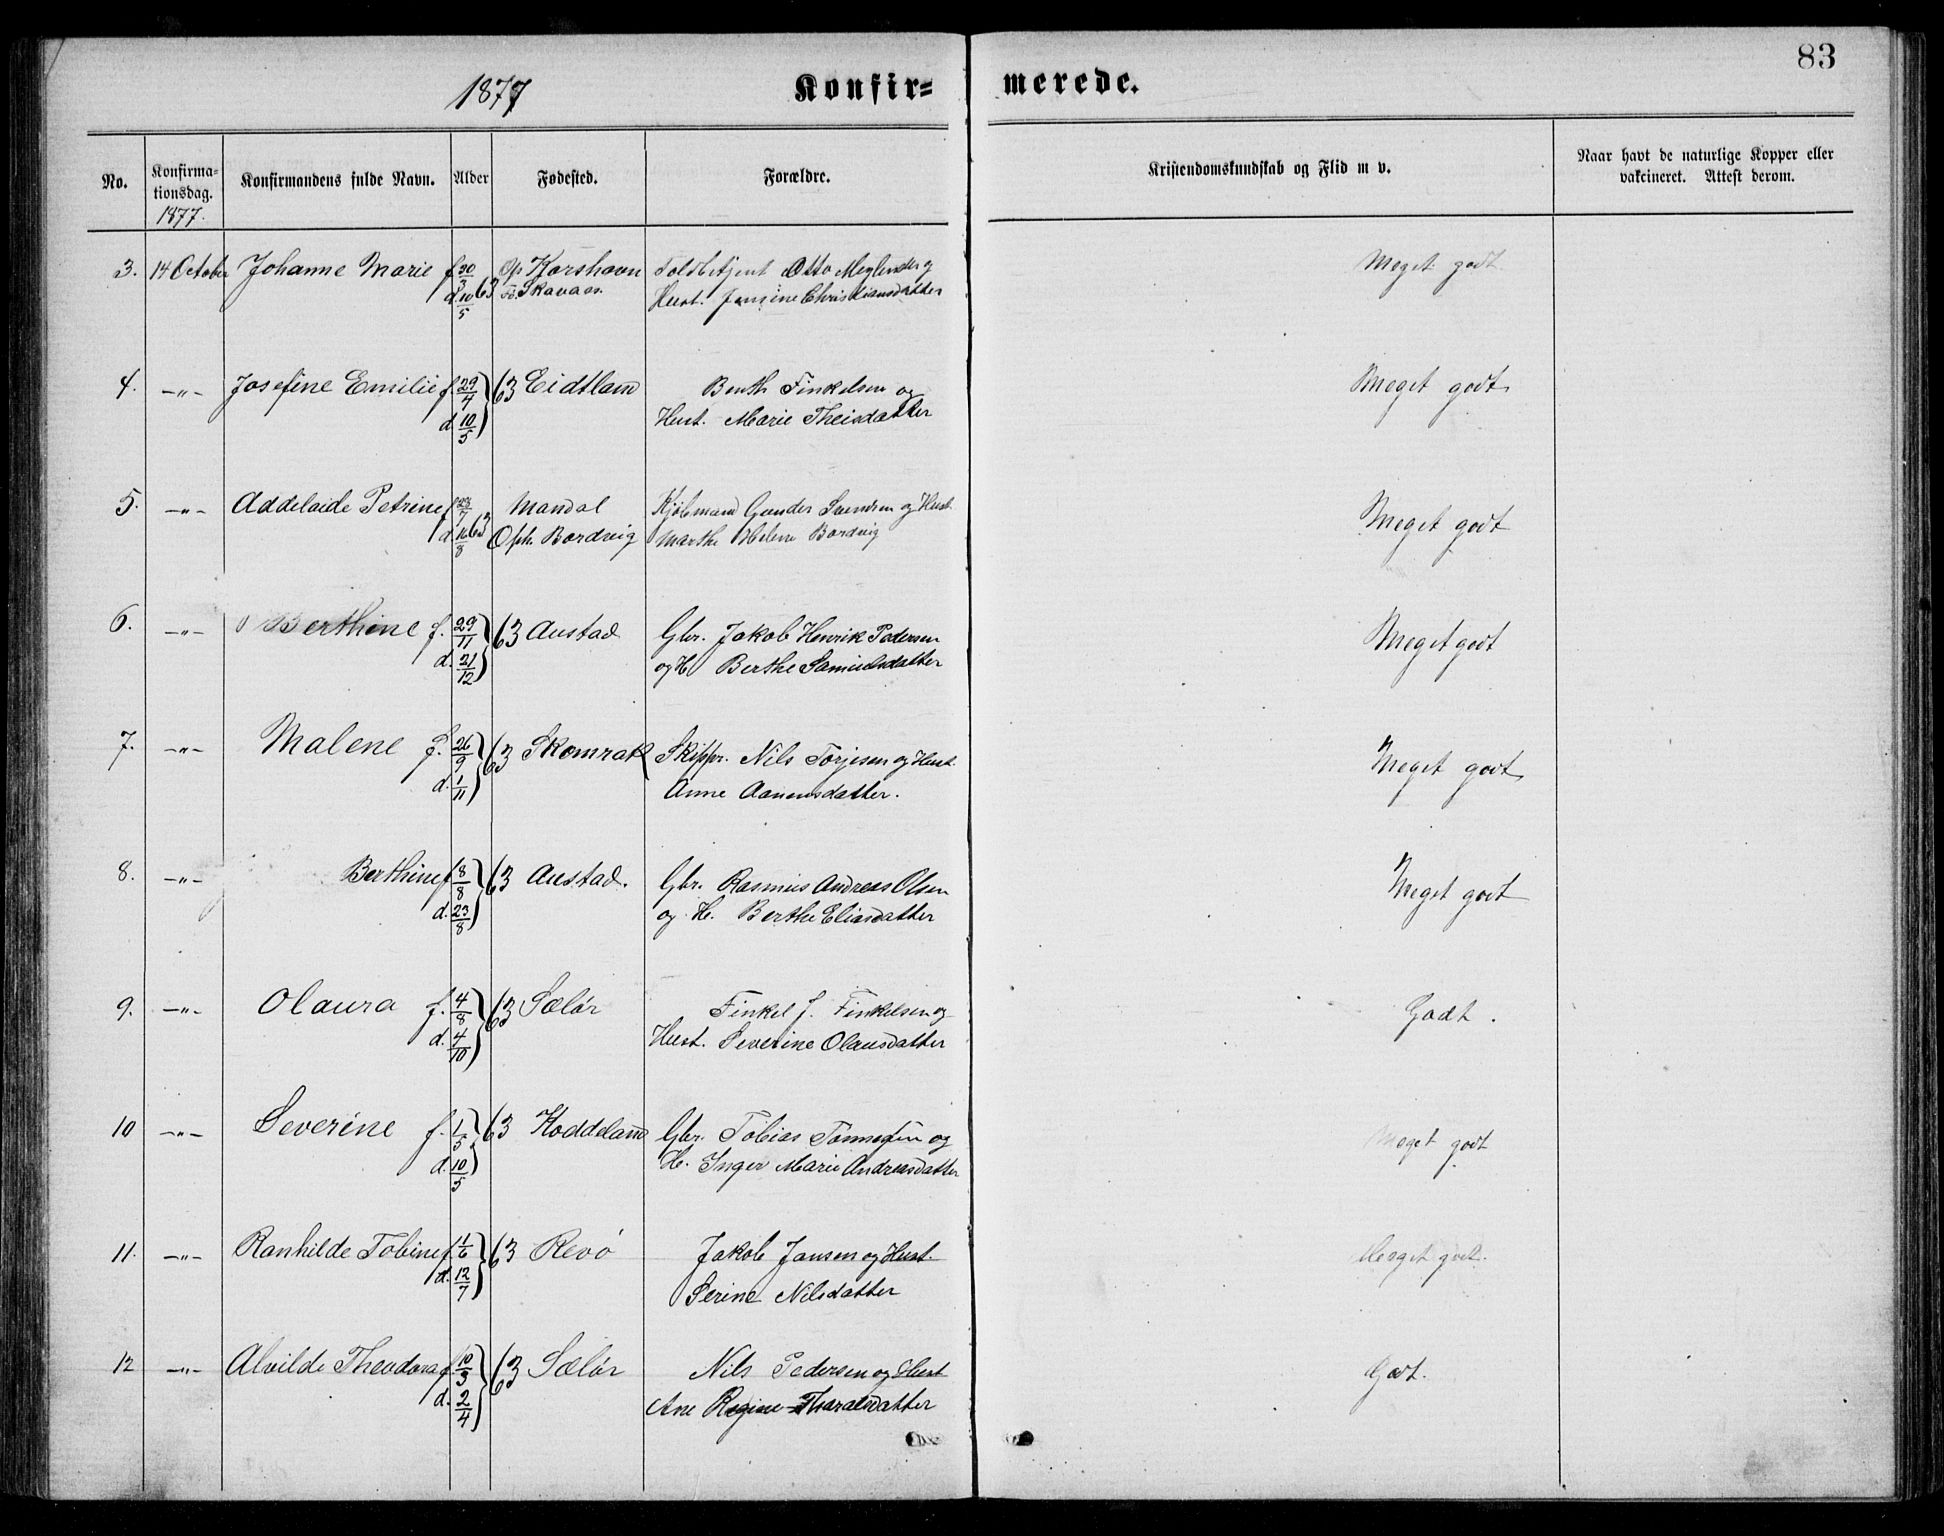 83
1877 Konfir= merede.
No. Konfirma-tionsdag. 1877. Konfirmandens fulde Navn. Alder Fødested. Forældre. Kristendomskundskab og Flid m v. Naar havt de naturlige Kopper eller vakcineret. Attest derom.
3. 14 October Johanne Marie f 30/3 63 Op Korshavn Toldbetjent Otto og Meget godt
d 10/5 Skavaas Hust. Jansine Christiansdatter
4. -"- Josefine Emilie f. 29/4 63 Eidtland Benth Finkelsen og Meget godt
d 10/5 Hust. Marie Theisdatter
5. -"- Addelaide Petrine f 23/7 63 Mandal Kjøbmand Gunder Svendsen og Hust. Meget godt
d 16/8 Oph. Bordvig Marthe Helene Bordvig
6. -"- Berthine f. 29/11 63 Austad Gbr. Jakob Henrik Pedersen Meget godt
d. 21/12 og H Berthe Samuelsdatter
7. -"- Malene f. 26/9 63 Skomrak Skippr. Nils Torjesen og Hust. Meget godt
d. 1/11 Anne Aanensdatter.
8. -"- Berthine f 8/8 63 Austad. Gbr. Rasmus Andreas Olsen Meget godt
d. 23/8 og H. Berthe Eliasdatter
9. -"- Olaura f. 4/8 63 Sælør Finkel J. Finkelsen og Godt.
d. 4/10 Hust. Severine Olausdatter
10 -"- Severine f. 1/5 63 Hoddeland Gbr. Tobias Tønnesen og Meget godt
d. 10/5 H. Inger Marie Andreasdatter
11. -"- Ranhilde Tobine f. 1/6 63 Revø Jakob Jansen og Hust. Meget godt.
d. 12/7 Serine Nilsdatter
12 -"- Alvilde Theodora f. 10/3 63 Sælør Nils Pedersen og Hust Godt.
d. 2/4 Ane Regine Tharalsdatter